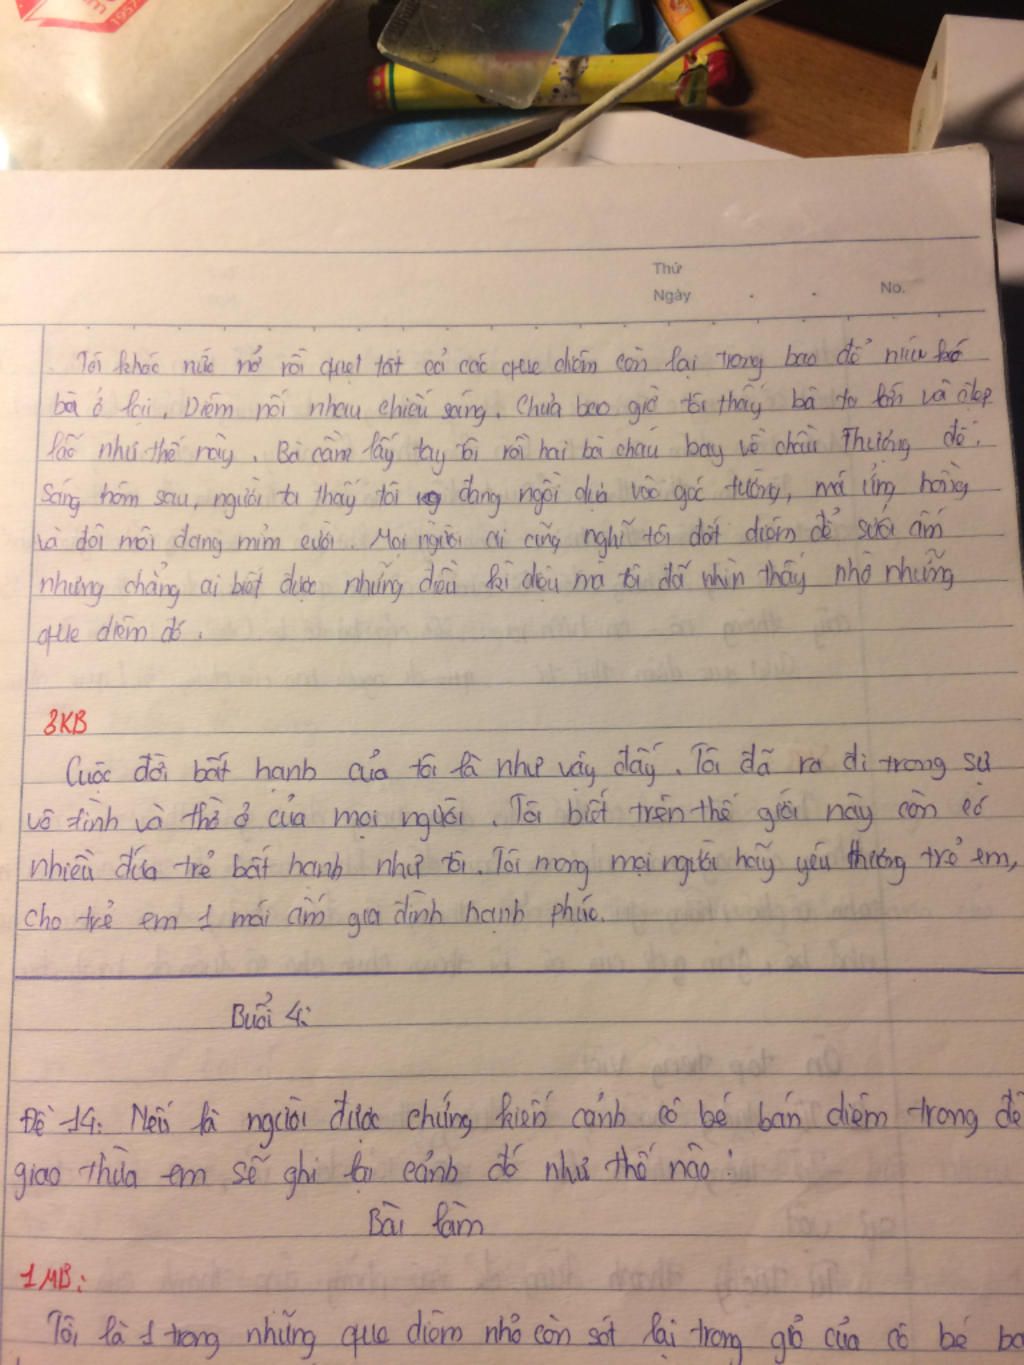 1957
Thứ
Ngày . . No.
Tôi khóc nức nở rồi quẹt tất cả các que diêm còn lại trong bao để níu kéo
bà ở lại. Diêm nối nhau chiếu sáng. Chưa bao giờ tôi thấy bà to lớn và đẹp
lão như thế này. Bà cầm lấy tay tôi rồi hai bà cháu bay về chầu Thượng đế.
Sáng hôm sau, người ta thấy tôi đang ngồi dựa vào góc tường, má ửng hồng
và đôi môi đang mỉm cười. Mọi người ai cũng nghĩ tôi đốt diêm để sưởi ấm
nhưng chẳng ai biết được những điều kì diệu mà tôi đã nhìn thấy nhờ những
que diêm đó.
3KB
Cuộc đời bất hạnh của tôi là như vậy đấy. Tôi đã ra đi trong sự
vô tình và thờ ơ của mọi người. Tôi biết trên thế giới này còn có
nhiều đứa trẻ bất hạnh như tôi. Tôi mong mọi người hãy yêu thương trẻ em,
cho trẻ em 1 mái ấm gia đình hạnh phúc.
Buổi 4:
Đề 14: Nếu là người được chứng kiến cảnh cô bé bán diêm trong đê
giao thừa em sẽ ghi lại cảnh đó như thế nào?
Bài làm
1MB:
Tôi là 1 trong những que diêm nhỏ còn sót lại trong giỏ của cô bé bá